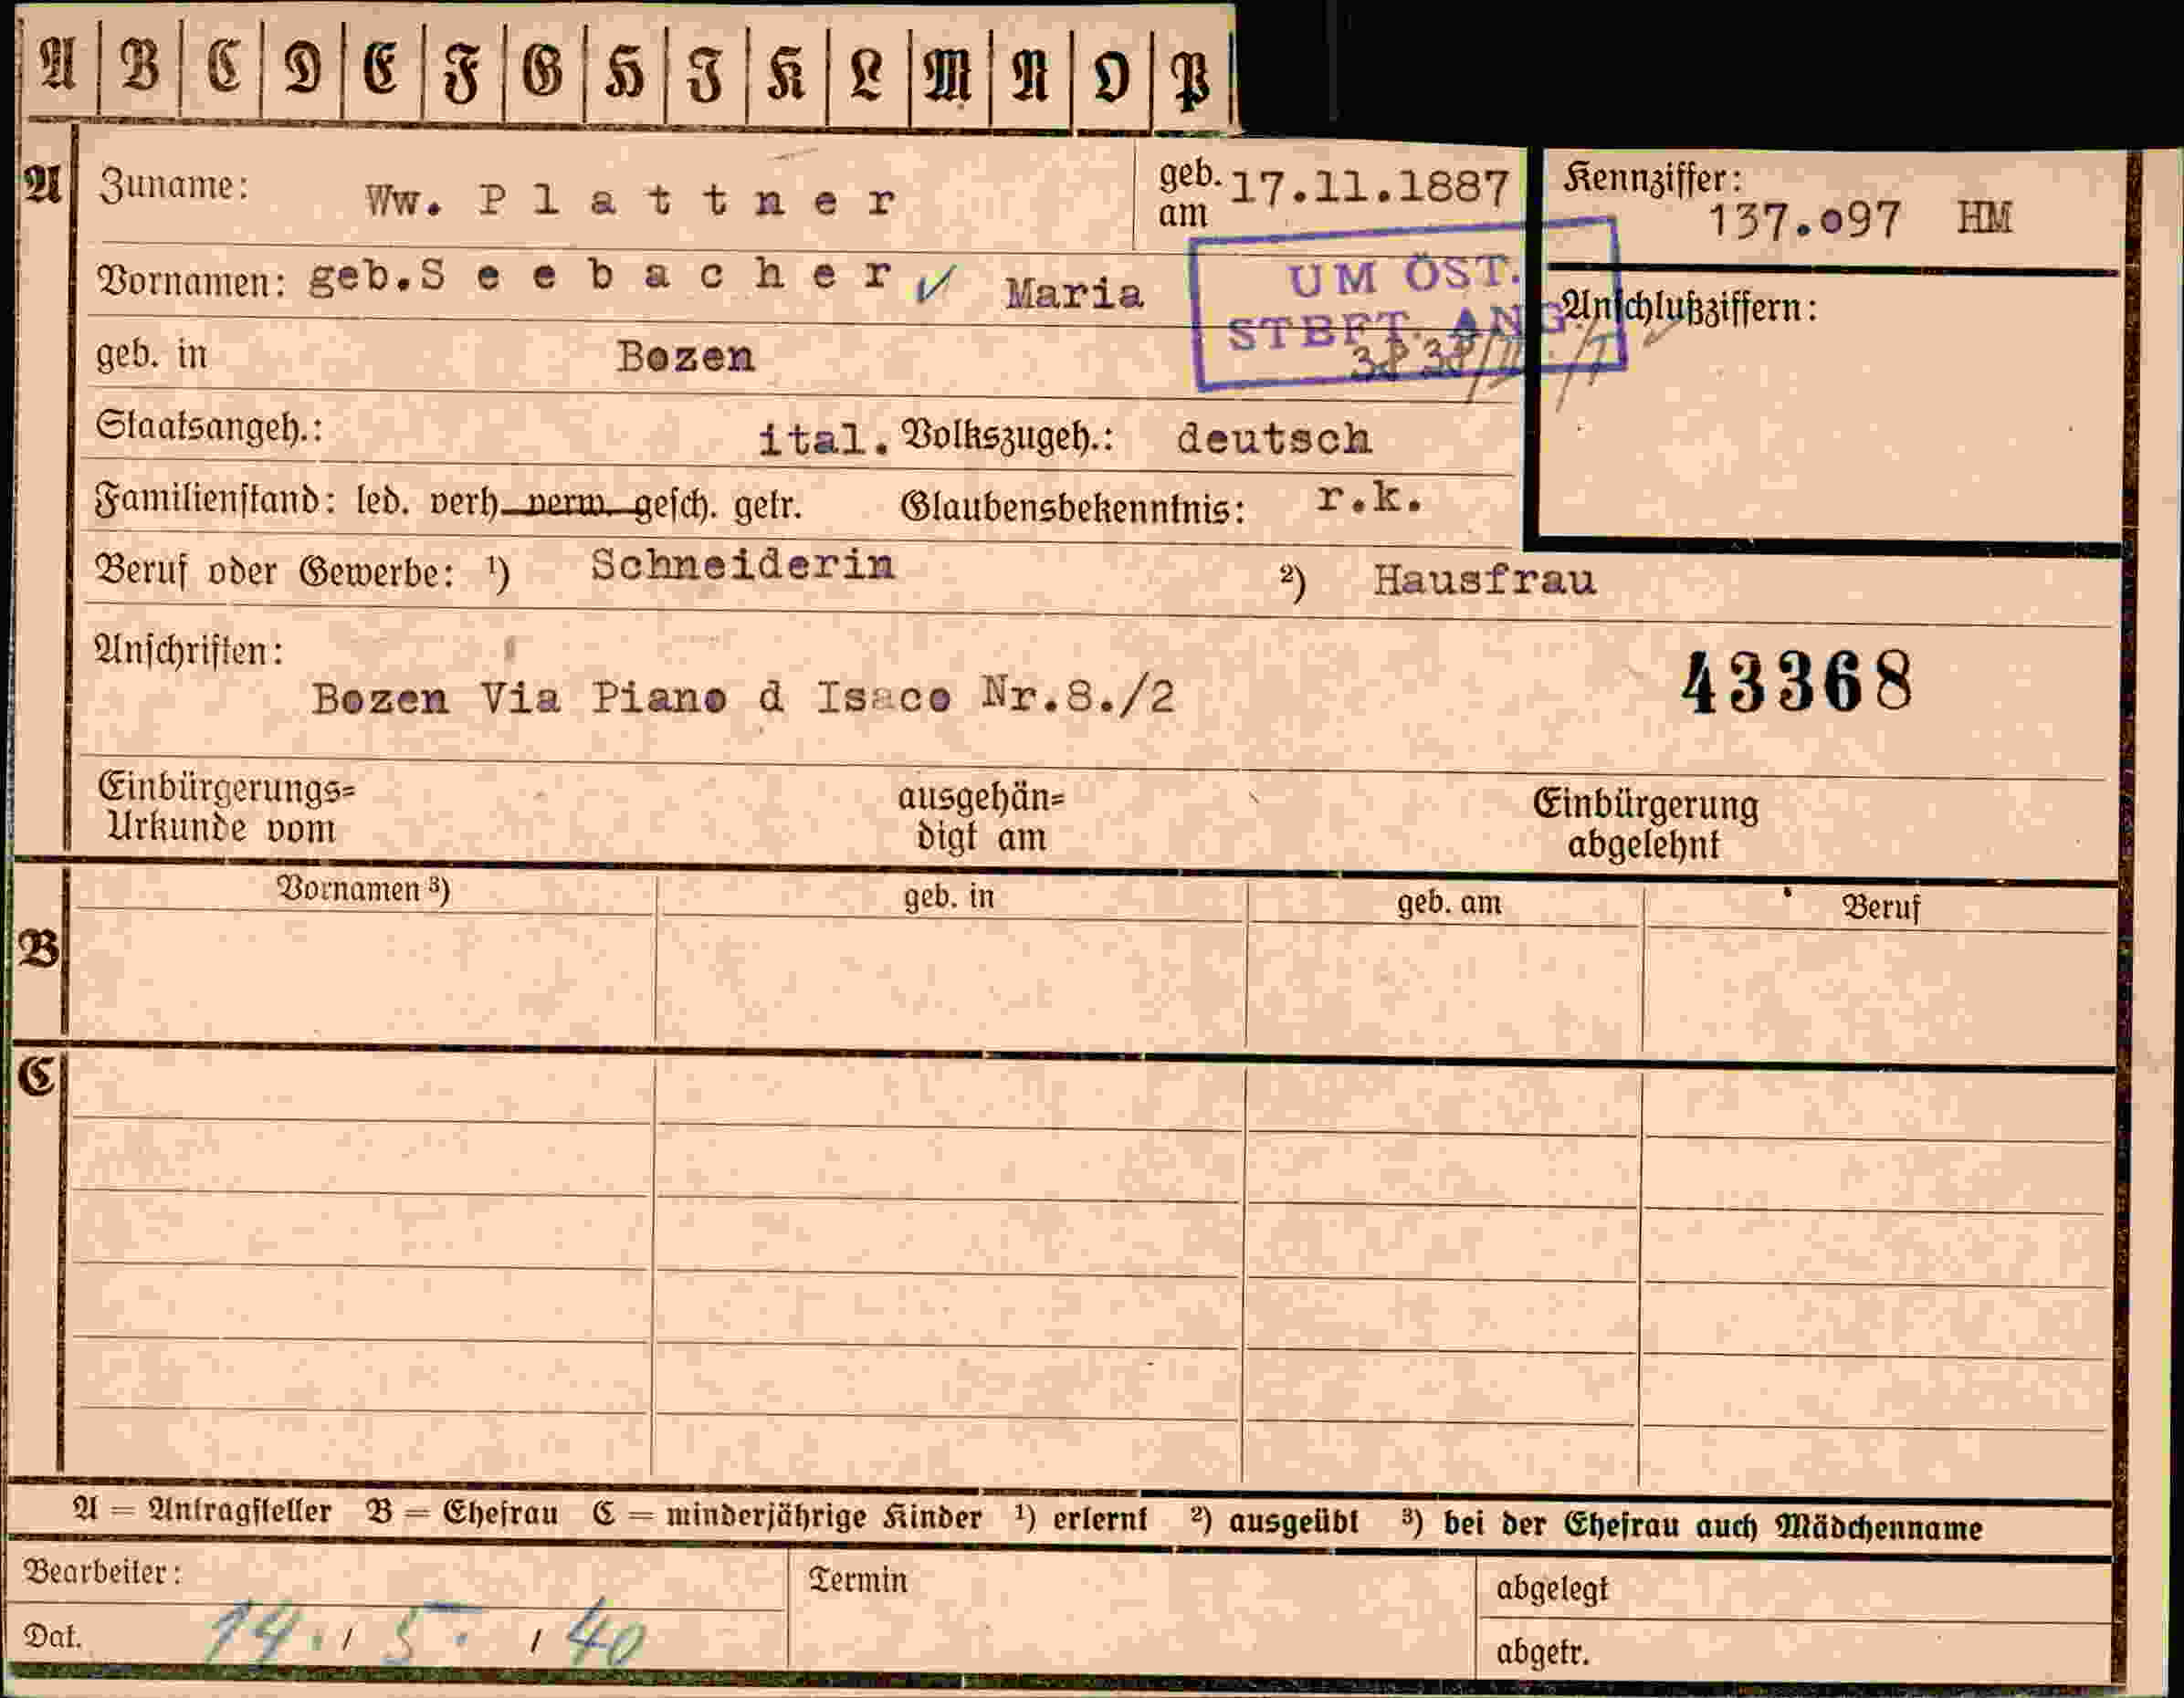 A B C D E F G H I K L M N O P
A Zuname: Ww. Plattner geb. am 17.11.1887 Kennziffer: 137.o97 HM
Vornamen: geb.Seebacher ✓ Maria
UM ÖST.
STBFT. ANG.
Anschlußziffern:
geb. in Bozen
Staatsangeh.: ital. Volkszugeh.: deutsch
Familienstand: led. verh. verw. gesch. getr. Glaubensbekenntnis: r.k.
Beruf oder Gewerbe: ¹) Schneiderin ²) Hausfrau
Anschriften:
43368
Bozen Via Piano d Isaco Nr.8./2
Einbürgerungs= ausgehän= Einbürgerung
Urkunde vom digt am abgelehnt
Vornamen ³) geb. in geb. am Beruf
B
C
A = Antragsteller B = Ehefrau C = minderjährige Kinder ¹) erlernt ²) ausgeübt ³) bei der Ehefrau auch Mädchenname
Bearbeiter: Termin abgelegt
Dat. 14. / 5. / 40 abgetr.